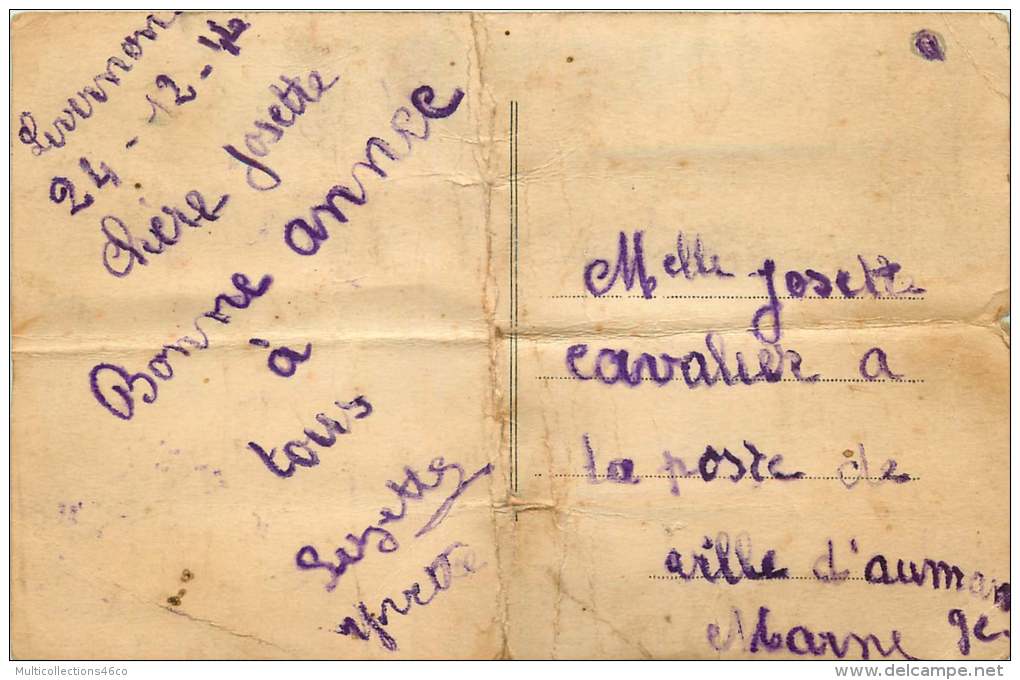 Louvemont
24-12-42
chère Josette
Bonne année
à
tous
Suzette
yvette
Melle Josette
cavalier a
la poste de
ville d'aumar
Marne ge.
Multicollections46co
www.delcampe.net